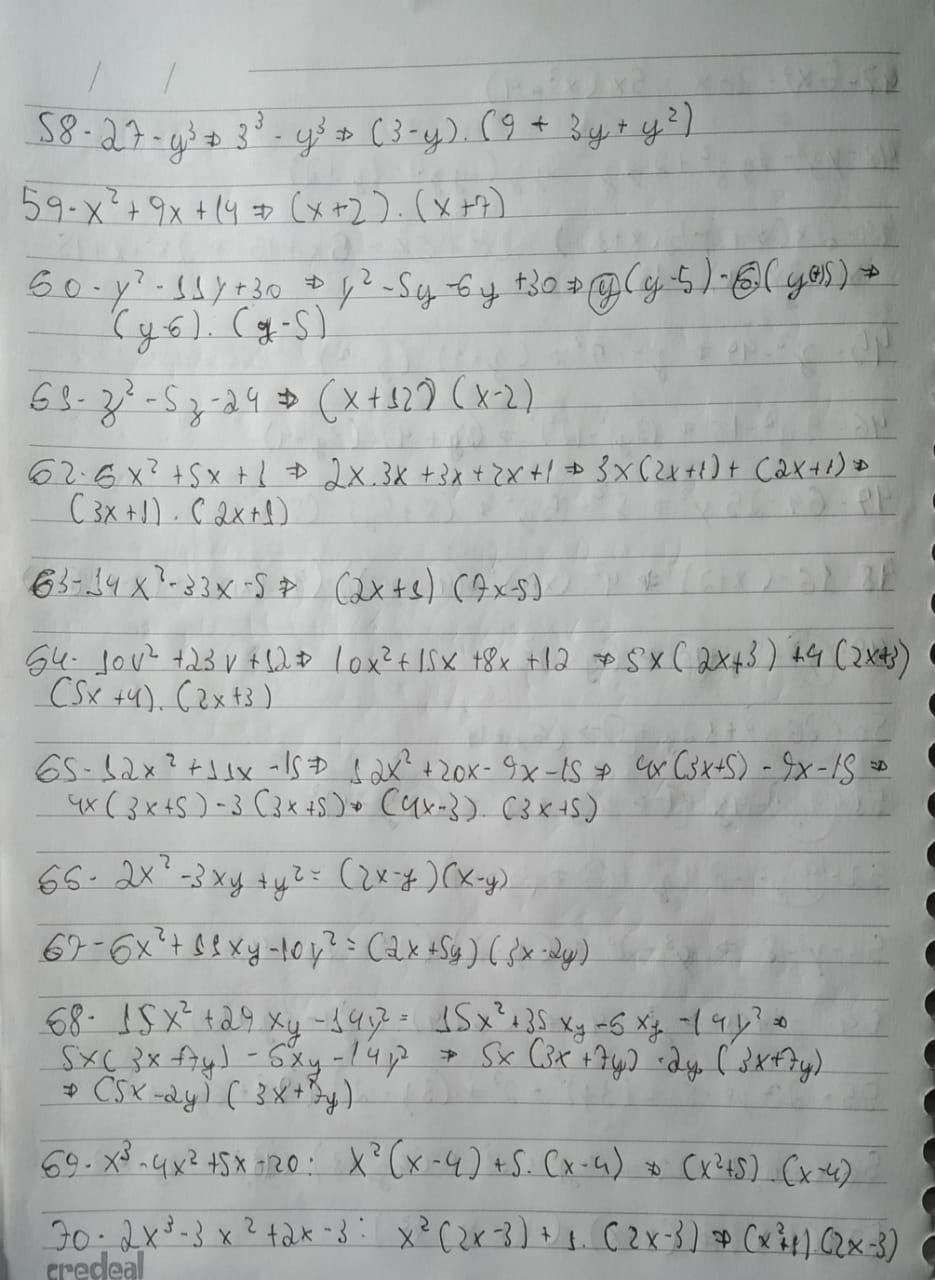 / /
58 - 27 - y³ ⇒ 3³ - y³ ⇒ (3-y). (9 + 3y + y²)
59 - x² + 9x + 14 ⇒ (x+2) . (x+7)
60 - y² - 11y + 30 ⇒ y² - 5y - 6y + 30 ⇒ y(y-5) - 6(y+5) ⇒
(y-6). (y-5)
61 - z² - 5z - 24 ⇒ (x+12) (x-2)
62 - 6x² + 5x + 1 ⇒ 2x.3x + 3x + 2x + 1 ⇒ 3x(2x+1) + (2x+1) ⇒
(3x+1) . (2x+1)
63 - 14x² - 33x - 5 ⇒ (2x+1) (7x-5)
64 - 10v² + 23v + 12 ⇒ 10x² + 15x + 8x + 12 ⇒ 5x(2x+3) + 4(2x+3)
(5x+4). (2x+3)
65 - 12x² + 11x - 15 ⇒ 12x² + 20x - 9x - 15 ⇒ 4x(3x+5) - 9x - 15 ⇒
4x(3x+5) - 3(3x+5) ⇒ (4x-3). (3x+5)
66 - 2x² - 3xy + y² = (2x-y)(x-y)
67 - 6x² + 11xy - 10y² = (2x+5y)(3x-2y)
68 - 15x² + 29xy - 14y² = 15x² + 35xy - 6xy - 14y² ⇒
5x(3x+7y) - 6xy - 14y² ⇒ 5x(3x+7y) - 2y(3x+7y)
⇒ (5x-2y)(3x+7y)
69 - x³ - 4x² + 5x - 20: x²(x-4) + 5.(x-4) ⇒ (x²+5).(x-4)
70 - 2x³ - 3x² + 2x - 3: x²(2x-3) + 1.(2x-3) ⇒ (x²+1).(2x-3)
credeal